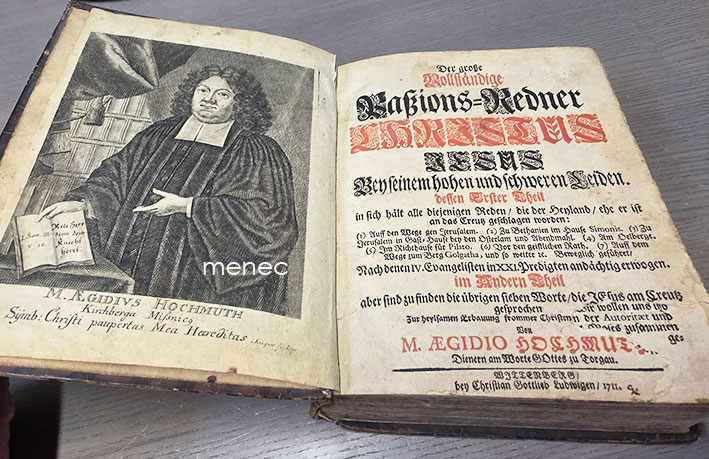 Rede Herr
1. Sam. III
v. 10.
denn dein
Knecht
höret.
menec
M. ÆGIDIVS HOCHMUTH
Kirchberga Misnicq
Symb: Christi paupertas Mea Hæreditas.
Der große
Vollständige
Paßions-Redner
CHRISTUS
JESUS
Bey seinem hohen und schweren Leiden.
dessen Erster Theil
in sich hält alle diejenigen Reden/ die der Heyland/ ehe er ist
an das Creutz geschlagen worden:
(1) Auff den Wege gen Jerusalem. (2) Zu Bethanien im Hause Simonis. (3) Zu
Jerusalem in Gast-Hause bey den Osterlam und Abendmahl. (4) Am Oelberge.
(5) Im Richthause für Pilato. (6) Vor den geistlichen Rath. (7) Auff dem
Wege zum Berg Golgatha, und so weiter ic. Beweglich geführet/
Nach denen IV. Evangelisten in XXI. Predigten andächtig erwogen.
im Andern Theil
aber sind zu finden die übrigen sieben Worte/ die JEsus am Creutz
gesprochen wir wollen uns
Zur heylsamen Erbauung frommer Christen der Autorität und
zusammen
Von
M. ÆGIDIO HOCHMUT
Dienern am Worte GOttes zu Torgau.
WITTENBERG/
bey Christian Gottlieb Ludwigen/ 1711.